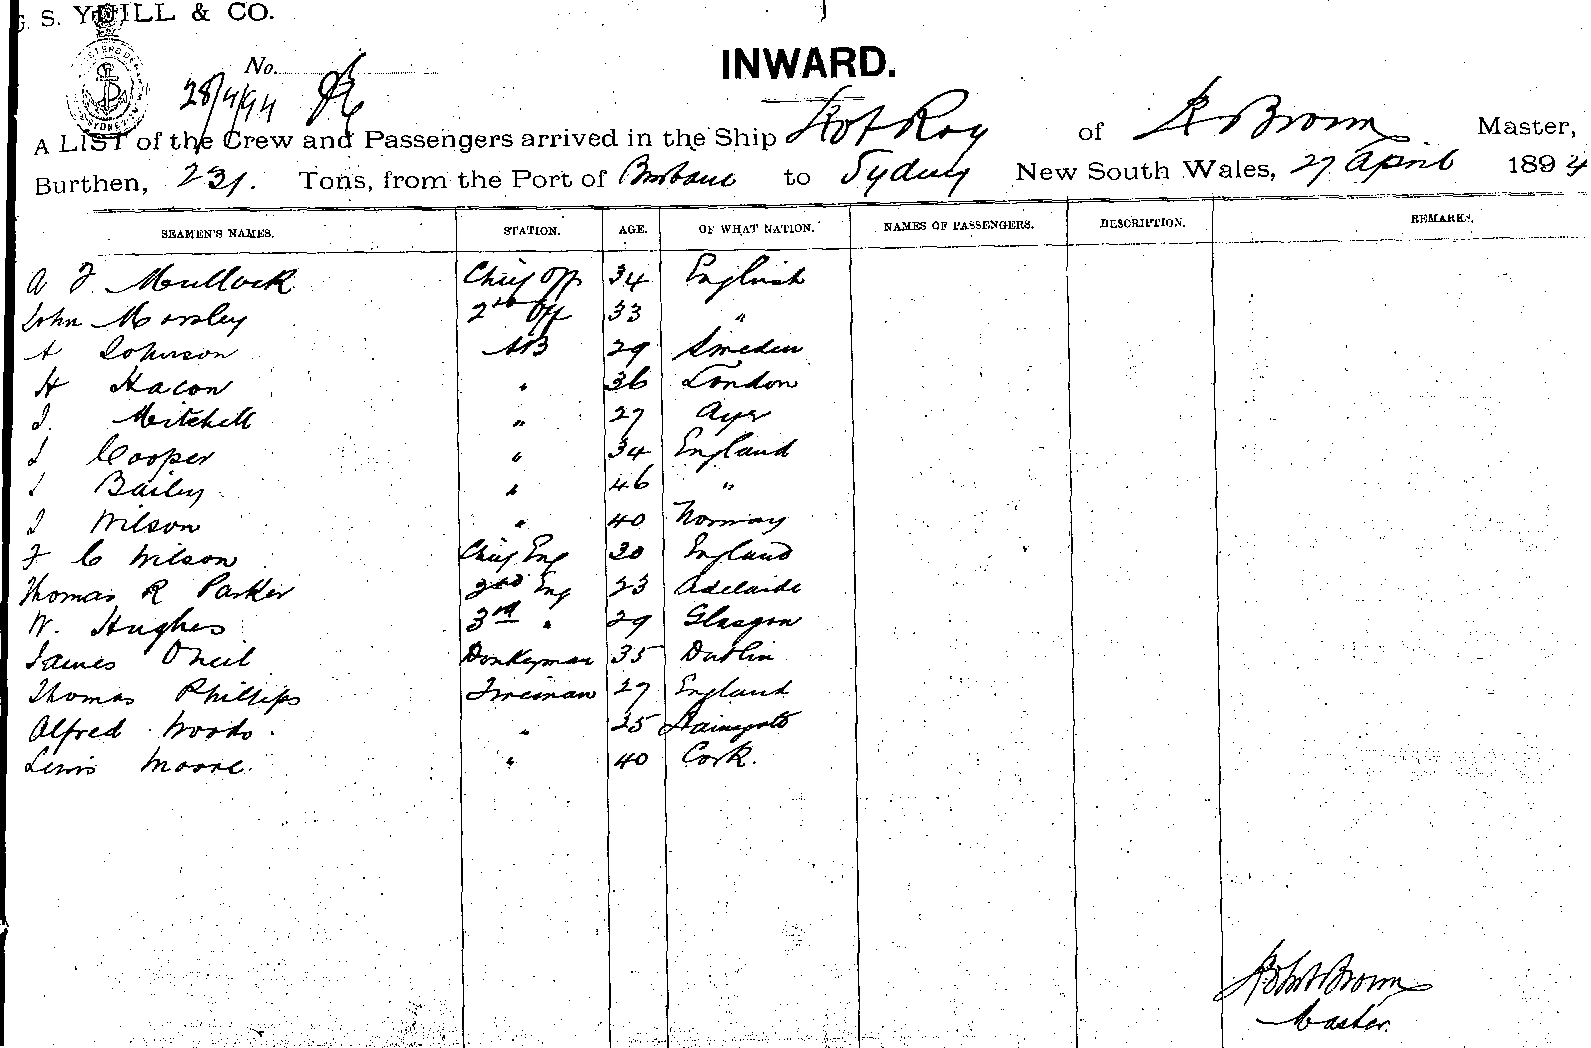 G. S. YUILL & CO.
INWARD.
No.
28/4/94
A LIST of the Crew and Passengers arrived in the Ship Rob Roy of R Brown Master,
Burthen, 231. Tons, from the Port of Brisbane to Sydney New South Wales, 27 April 1894
SEAMEN'S NAMES. STATION. AGE. OF WHAT NATION. NAMES OF PASSENGERS. DESCRIPTION. REMARKS.
A F Mullock Chief Off 34 English
John Morsley 2nd Off 33 "
A Johnson AB 29 Sweden
H Hacon " 36 London
J. Mitchell " 27 Ayr
J Cooper " 34 England
J Bailey " 46 "
J Wilson " 40 Norway
F C Wilson Chief Eng 30 England
Thomas R Parker 2nd Eng 23 Adelaide
W. Hughes 3rd " 29 Glasgow
James O'Neil Donkeyman 35 Dublin
Thomas Phillips Fireman 27 England
Alfred Woods. " 25 Ramsgate
Lewis Moore. " 40 Cork.
Robt Brown
Master.